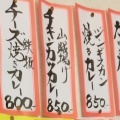 ジンギスカン
焼きカレー
850-
山賊揚げ
チキンカツカレー
850-
鉄板
チーズ焼きカレー
800-